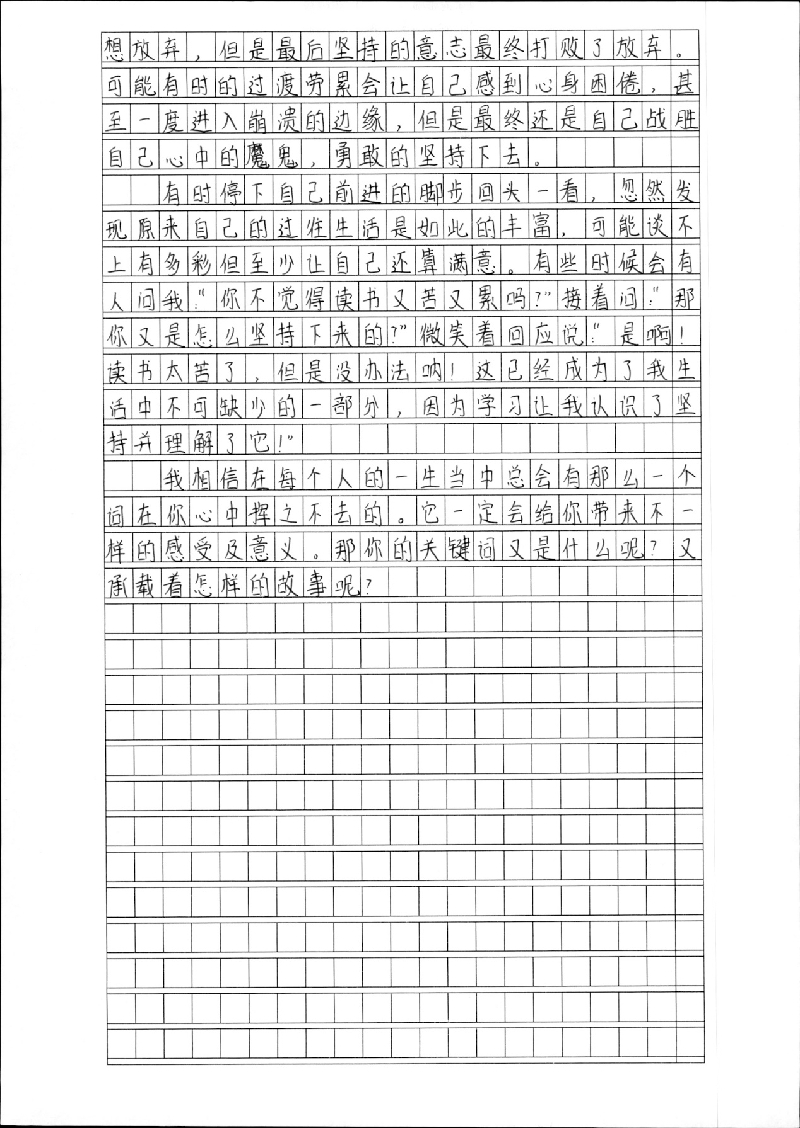 想放弃，但是最后坚持的意志最终打败了放弃。
可能有时的过渡劳累会让自己感到心身困倦，甚
至一度进入崩溃的边缘，但是最终还是自己战胜
自己心中的魔鬼，勇敢的坚持下去。
有时停下自己前进的脚步回头一看，忽然发
现原来自己的过往生活是如此的丰富，可能谈不
上有多彩但至少让自己还算满意。有些时候会有
人问我：“你不觉得读书又苦又累吗？”接着问：“那
你又是怎么坚持下来的？”微笑着回应说：“是啊！
读书太苦了，但是没办法呐！这已经成为了我生
活中不可缺少的一部分，因为学习让我认识了坚
持并理解了它！”
我相信在每个人的一生当中总会有那么一个
词在你心中挥之不去的。它一定会给你带来不一
样的感受及意义。那你的关键词又是什么呢？又
承载着怎样的故事呢？